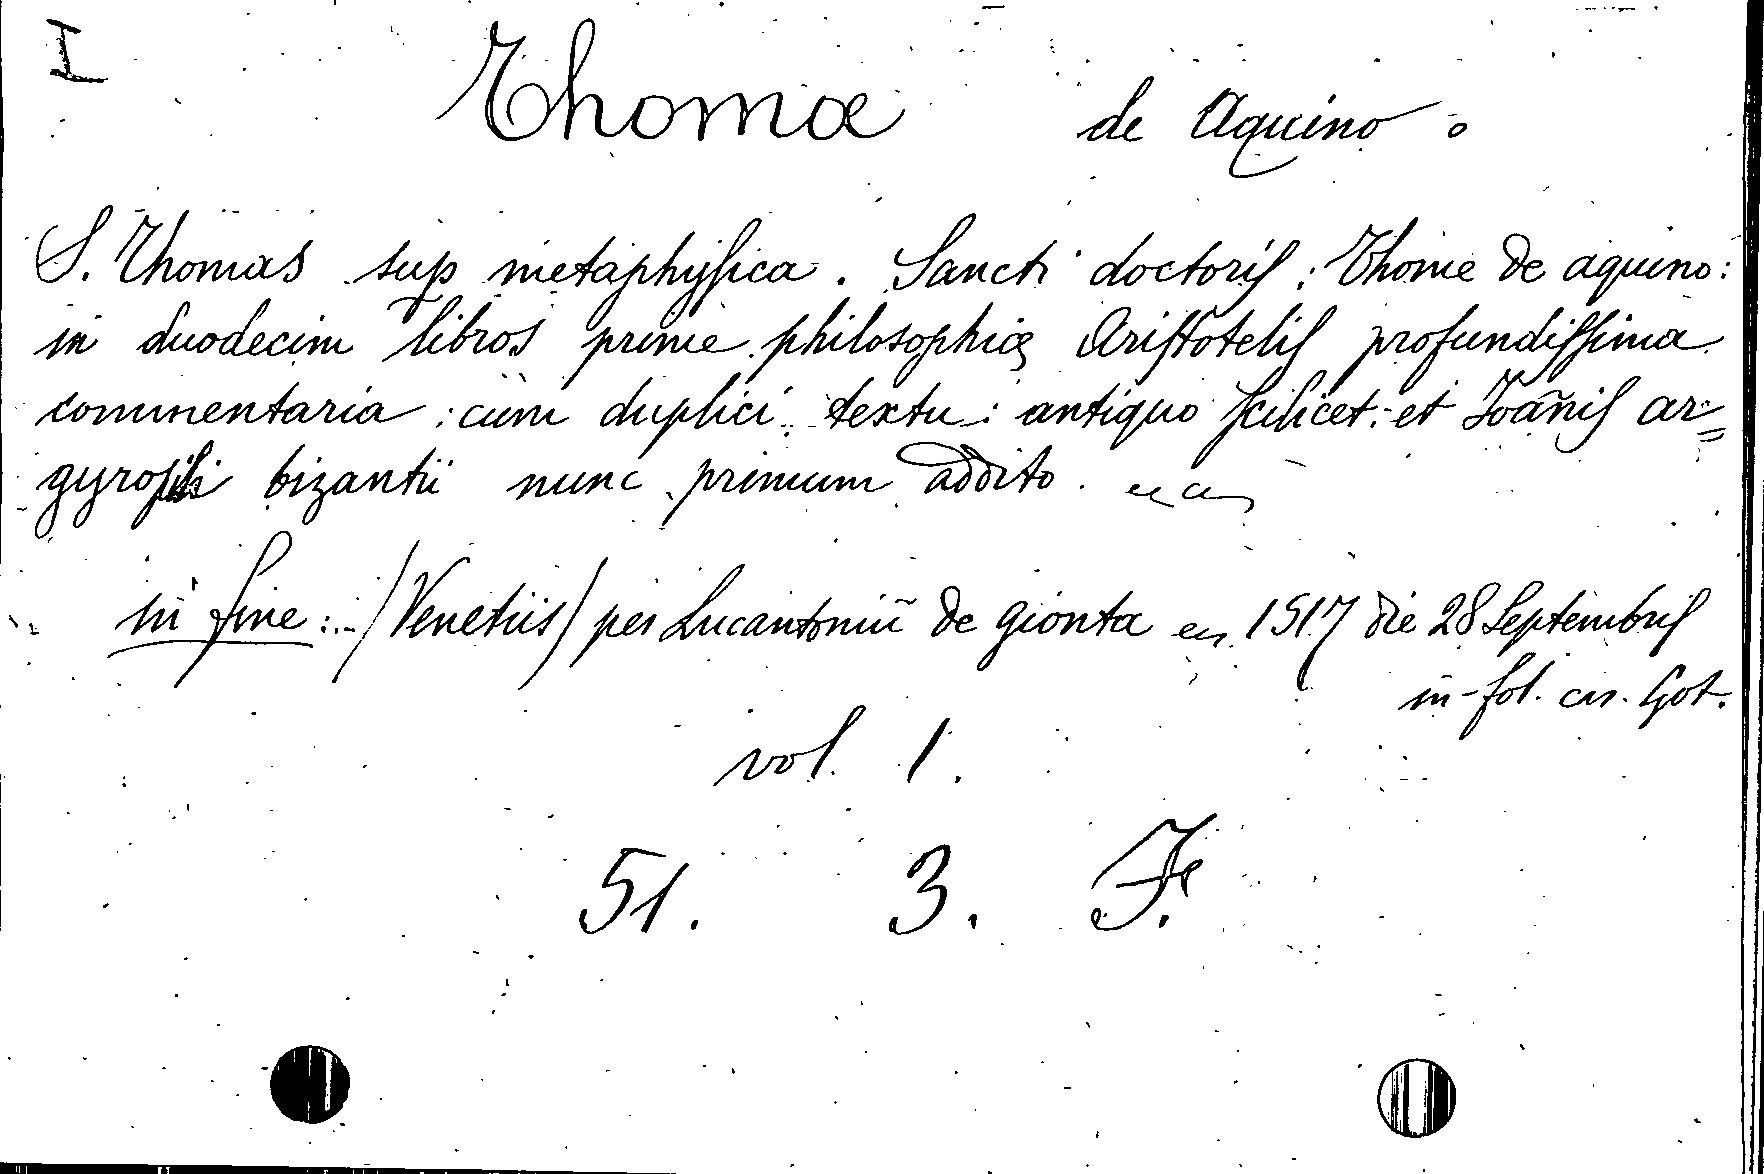 I
Thomæ de Aquino.
S. Thomas sup metaphyſica. Sancti doctoriſ: Thome de aquino:
in duodecim libros prime philosophiȩ Ariſtoteliſ profundiſſima
commentaria: cum duplici textu: antiquo ſcilicet: et Joāniſ ar=
gyropili bizantii nunc primum addito.
in fine: /Venetiis/ per Lucantoniū de gionta 1517 die 28 Septembriſ
in-fol. car. Got.
vol. 1.
51. 3. F.